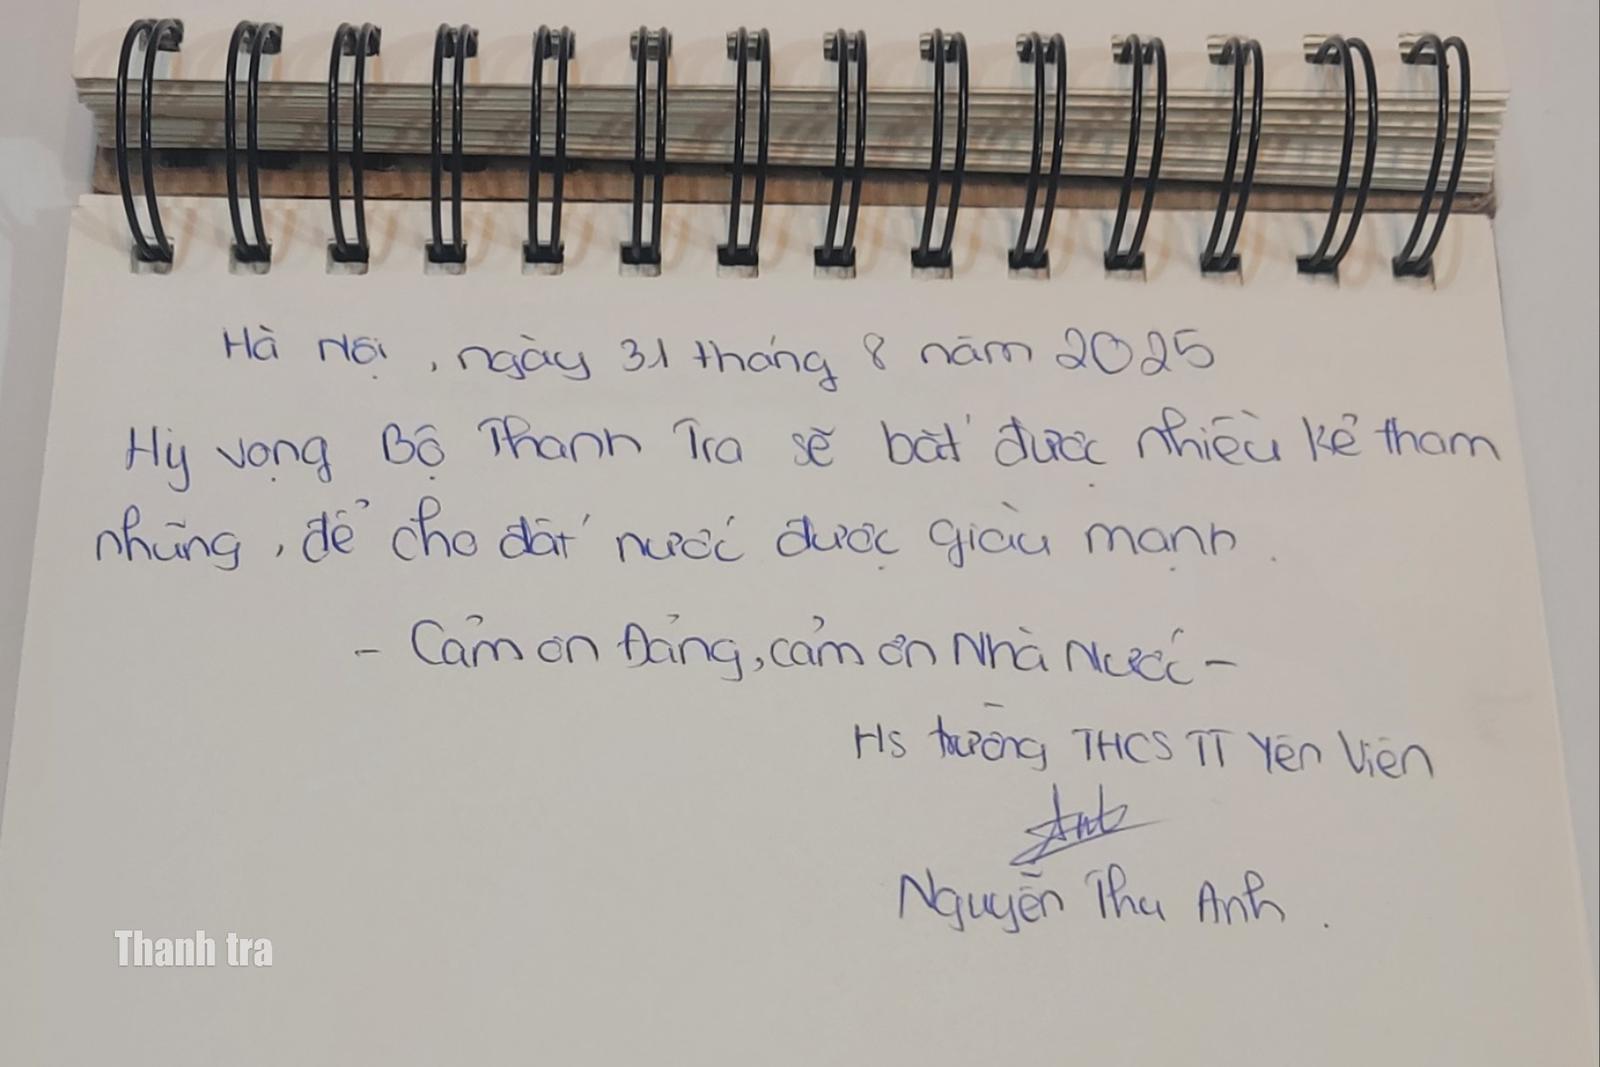 Hà Nội, ngày 31 tháng 8 năm 2025
Hy vọng Bộ Thanh Tra sẽ bắt được nhiều kẻ tham
nhũng, để cho đất nước được giàu mạnh.
- Cảm ơn Đảng, cảm ơn Nhà Nước -
Hs trường THCS TT Yên Viên
Anh
Nguyễn Thu Anh.
Thanh tra